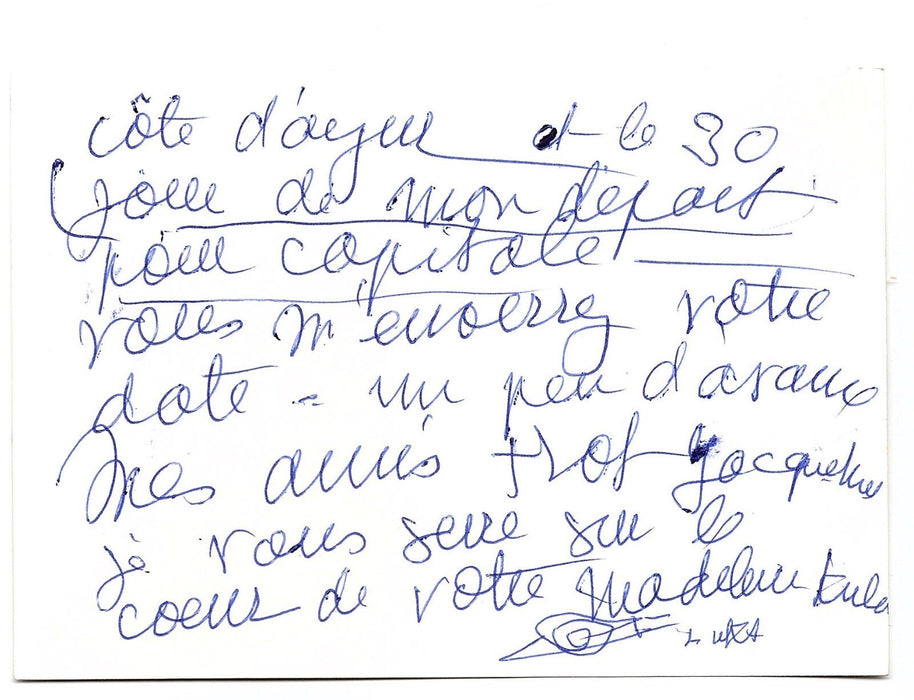 côte d'azur et le 30
jour de mon départ
pour capitale
vous m'enverrez votre
date - un peu d'avance
Mes amis trof Jacqueline
je vous serre sur le
coeur de votre Madeleine